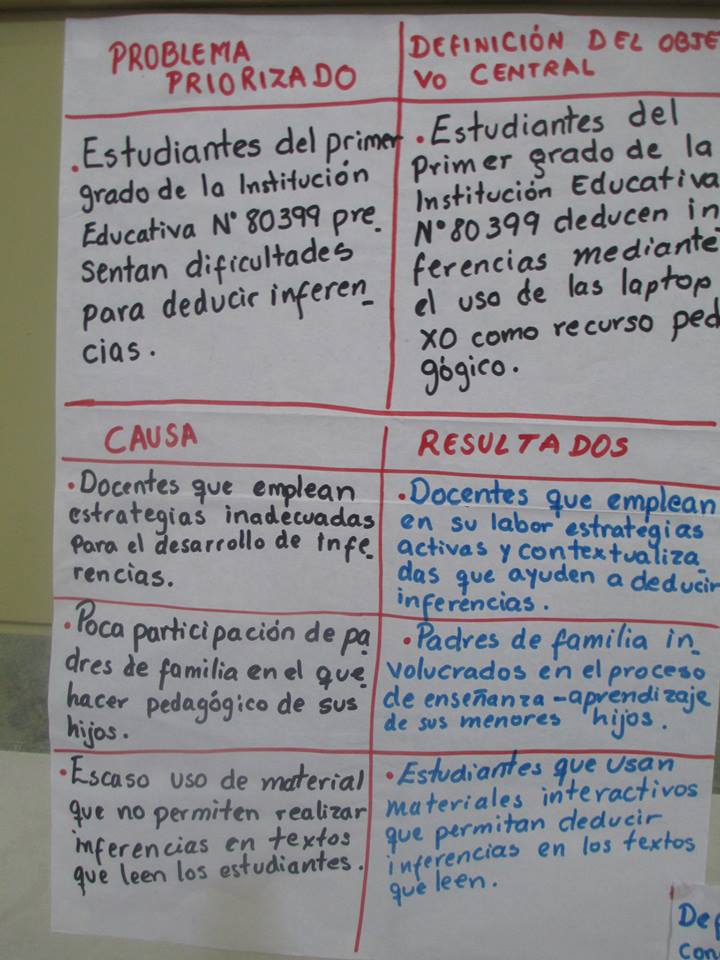 PROBLEMA
PRIORIZADO
.Estudiantes del primer
grado de la Institución
Educativa N° 80399 pre_
sentan dificultades
para deducir inferen_
cias.
DEFINICIÓN DEL OBJE
VO CENTRAL
.Estudiantes del
Primer grado de la
Institución Educativa
N° 80399 deducen in
ferencias mediante
el uso de las laptop
XO como recurso ped
gógico.
CAUSA
.Docentes que emplean
estrategias inadecuadas
para el desarrollo de infe_
rencias.
RESULTADOS
.Docentes que emplean
en su labor estrategias
activas y contextualiza_
das que ayuden a deducir
inferencias.
.Poca participación de pa_
dres de familia en el que_
hacer pedagógico de sus
hijos.
.Padres de familia in_
volucrados en el proceso
de enseñanza-aprendizaje
de sus menores hijos.
.Escaso uso de material
que no permiten realizar
inferencias en textos
que leen los estudiantes.
.Estudiantes que usan
materiales interactivos
que permitan deducir
inferencias en los textos
que leen.
Def
con